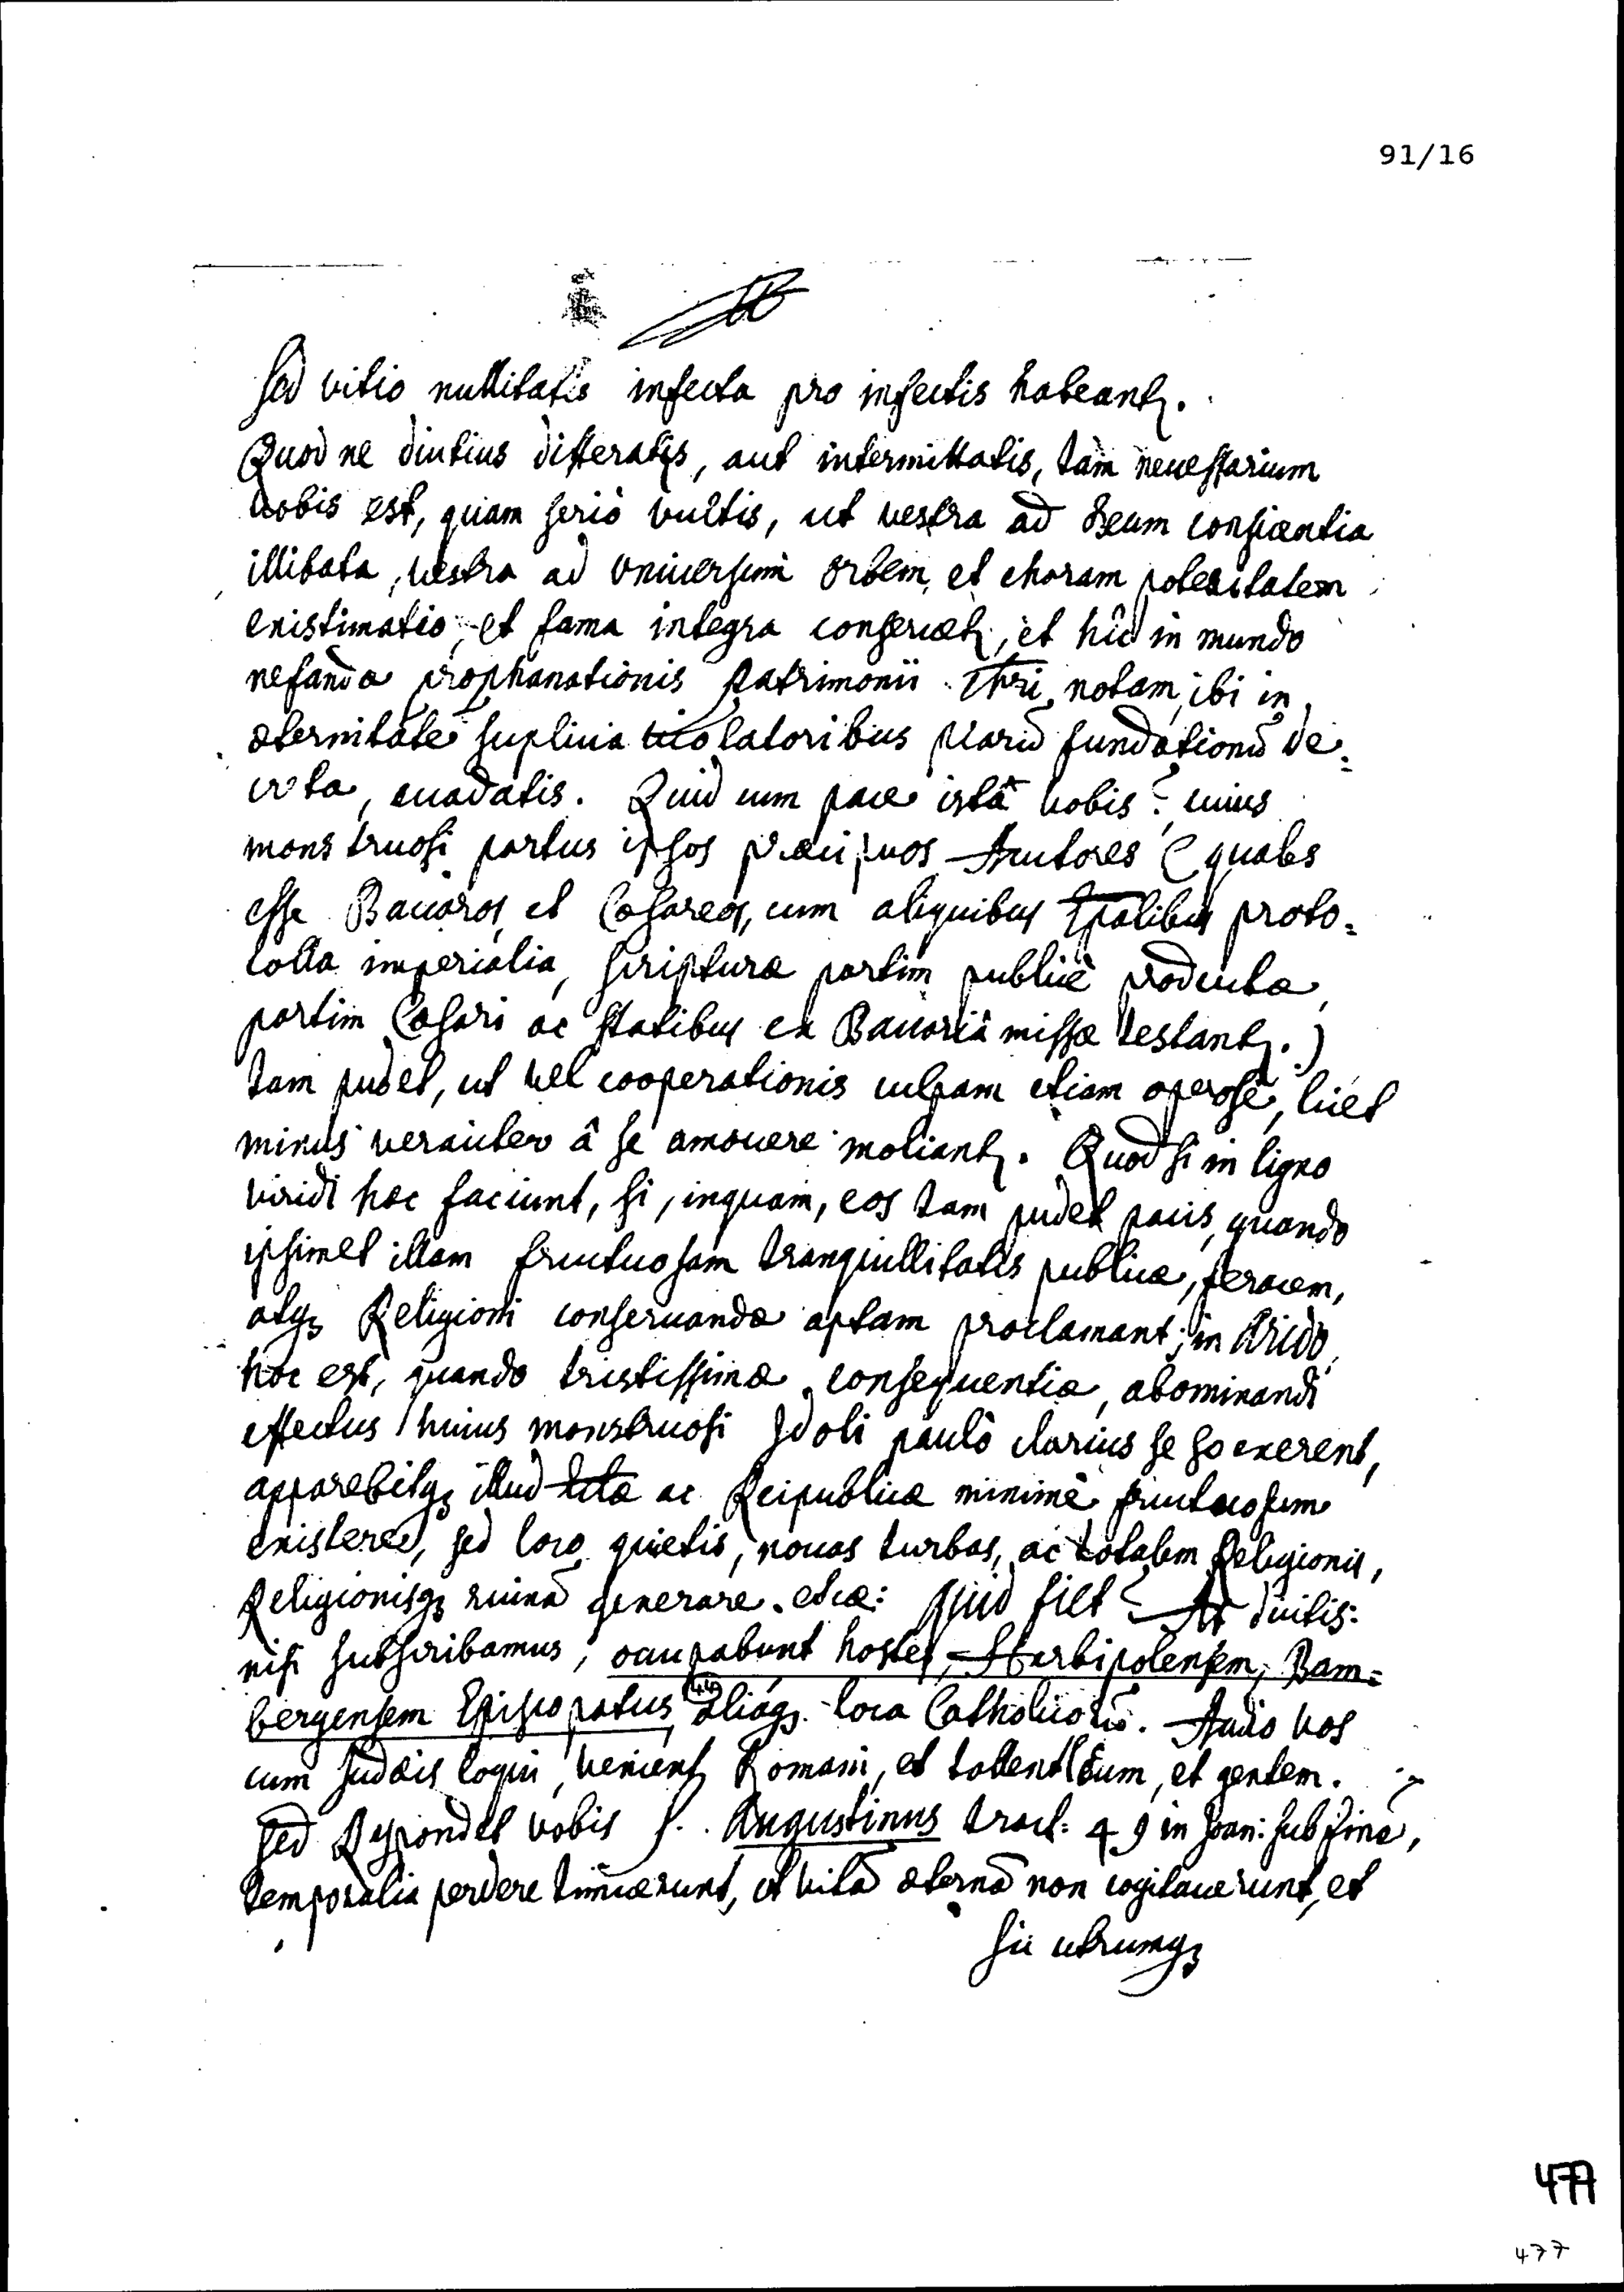 91/16
Sed vitio nullitatis infecta pro infectis habeantꝛ.
Quod ne diutius differatis, aut intermittatis, tàm necessarium
vobis est, quam seriò vultis, ut vestra ad Deum consciæntia
illibata, vestra ad vniuersum orbem, et charam posteritatem
existimatio, et fama integra conseruetꝛ, et hîc in mundo
nefandæ prophanationis patrimonii Chri notam, ibi in
æternitate suplicia violatoribus piarū fundationū de=
creta, euadatis. Quid cum pace istâ vobis? cuius
monstruosi partus ipsos præcipuos Autores (quales
esse Bauaros, et Cæsareos, cum aliquibus Epalibus proto=
colla imperialia, scripturæ partim publicè productæ,
partim Cæsari ac statibus ex Bauariâ missæ testantꝛ.)
tam pudet, ut vel cooperationis culpam etiam operosè, licet
minus veraciter â se amouere moliantꝛ. Quod si in ligno
viridi hoc faciunt, si, inquam, eos tam pudet pacis, quando
ipsimet illam fructuosam tranquillitatis publicæ, feracem,
atqꝫ Religioni conseruandæ aptam proclamant; in Arido,
hoc est, quando tristissimæ consequentiæ, abominandi
effectus huius monstruosi Idoli paulò clarius se exerent,
apparebitqꝫ illud ac Reipublicæ minimè fructuosum
existere, sed loco quietis, nouas turbas, ac totalem Religionis,
Religionisqꝫ ruinā generare. etcæ: quid fiet? At dicitis:
nisi subscribamus, occupabunt hostes, Herbipolensem, Bam=
bergensem Episcopatus, (44) aliaqꝫ loca Catholicorū. Audio vos
cum Judæis loqui, venientꝫ Romani, et tollent locum, et gentem.
Sed Respondet vobis S. Augustinus tract: 49 in Joan: sub fine,
temporalia perdere timuerunt, et vitā æternā non cogitauerunt, et
sic utrumqꝫ
477
477